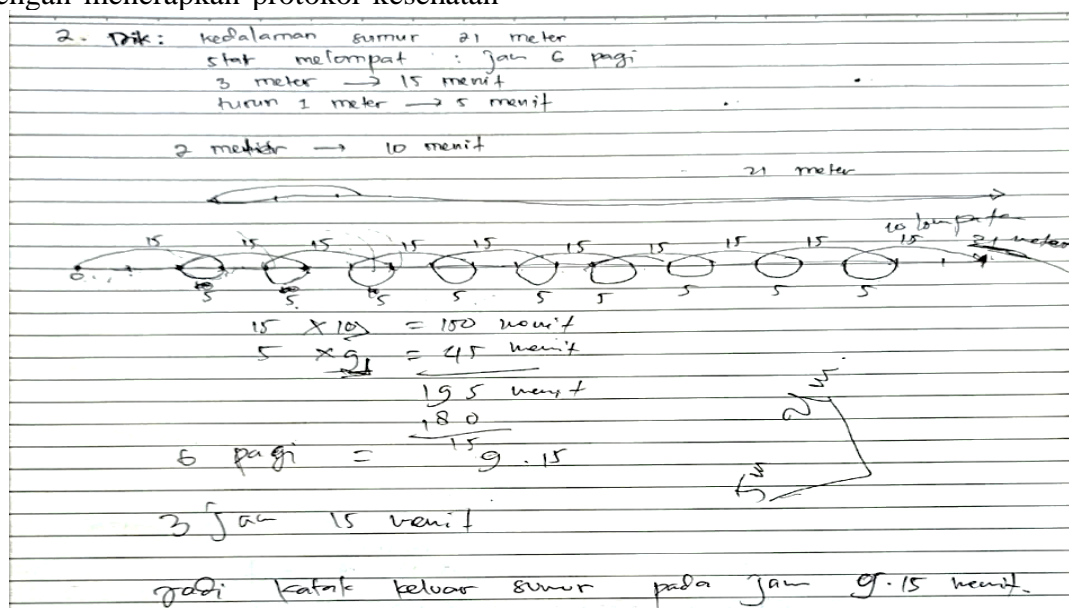 dengan menerapkan protokol kesehatan
2. Dik: kedalaman sumur 21 meter
start melompat : jam 6 pagi
3 meter → 15 menit
turun 1 meter → 5 menit
2 meter → 10 menit
21 meter
10 lompatan
15 15 15 15 15 15 15 15 15 15 21 meter
0
5 5 5 5 5 5 5 5 5
15 × 10 = 150 menit
5 × 9 = 45 menit
195 menit
180
15
6 pagi = 9.15
3 jam 15 menit
Jadi katak keluar sumur pada jam 9.15 menit.